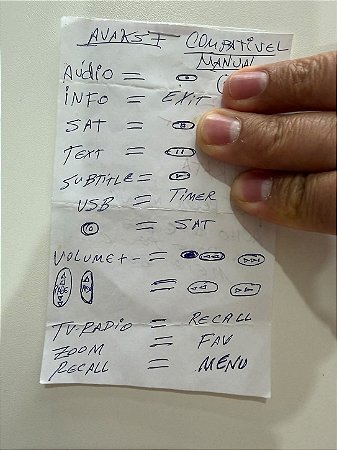 AVAKS 7 COMPATIVEL
MANUAL
AÚDIO =
INFO = EXIT
SAT =
TEXT =
SUBTITLE =
USB = TIMER
= SAT
VOLUME + - =
=
TV-RADIO = RECALL
ZOOM = FAV
RECALL = MENU